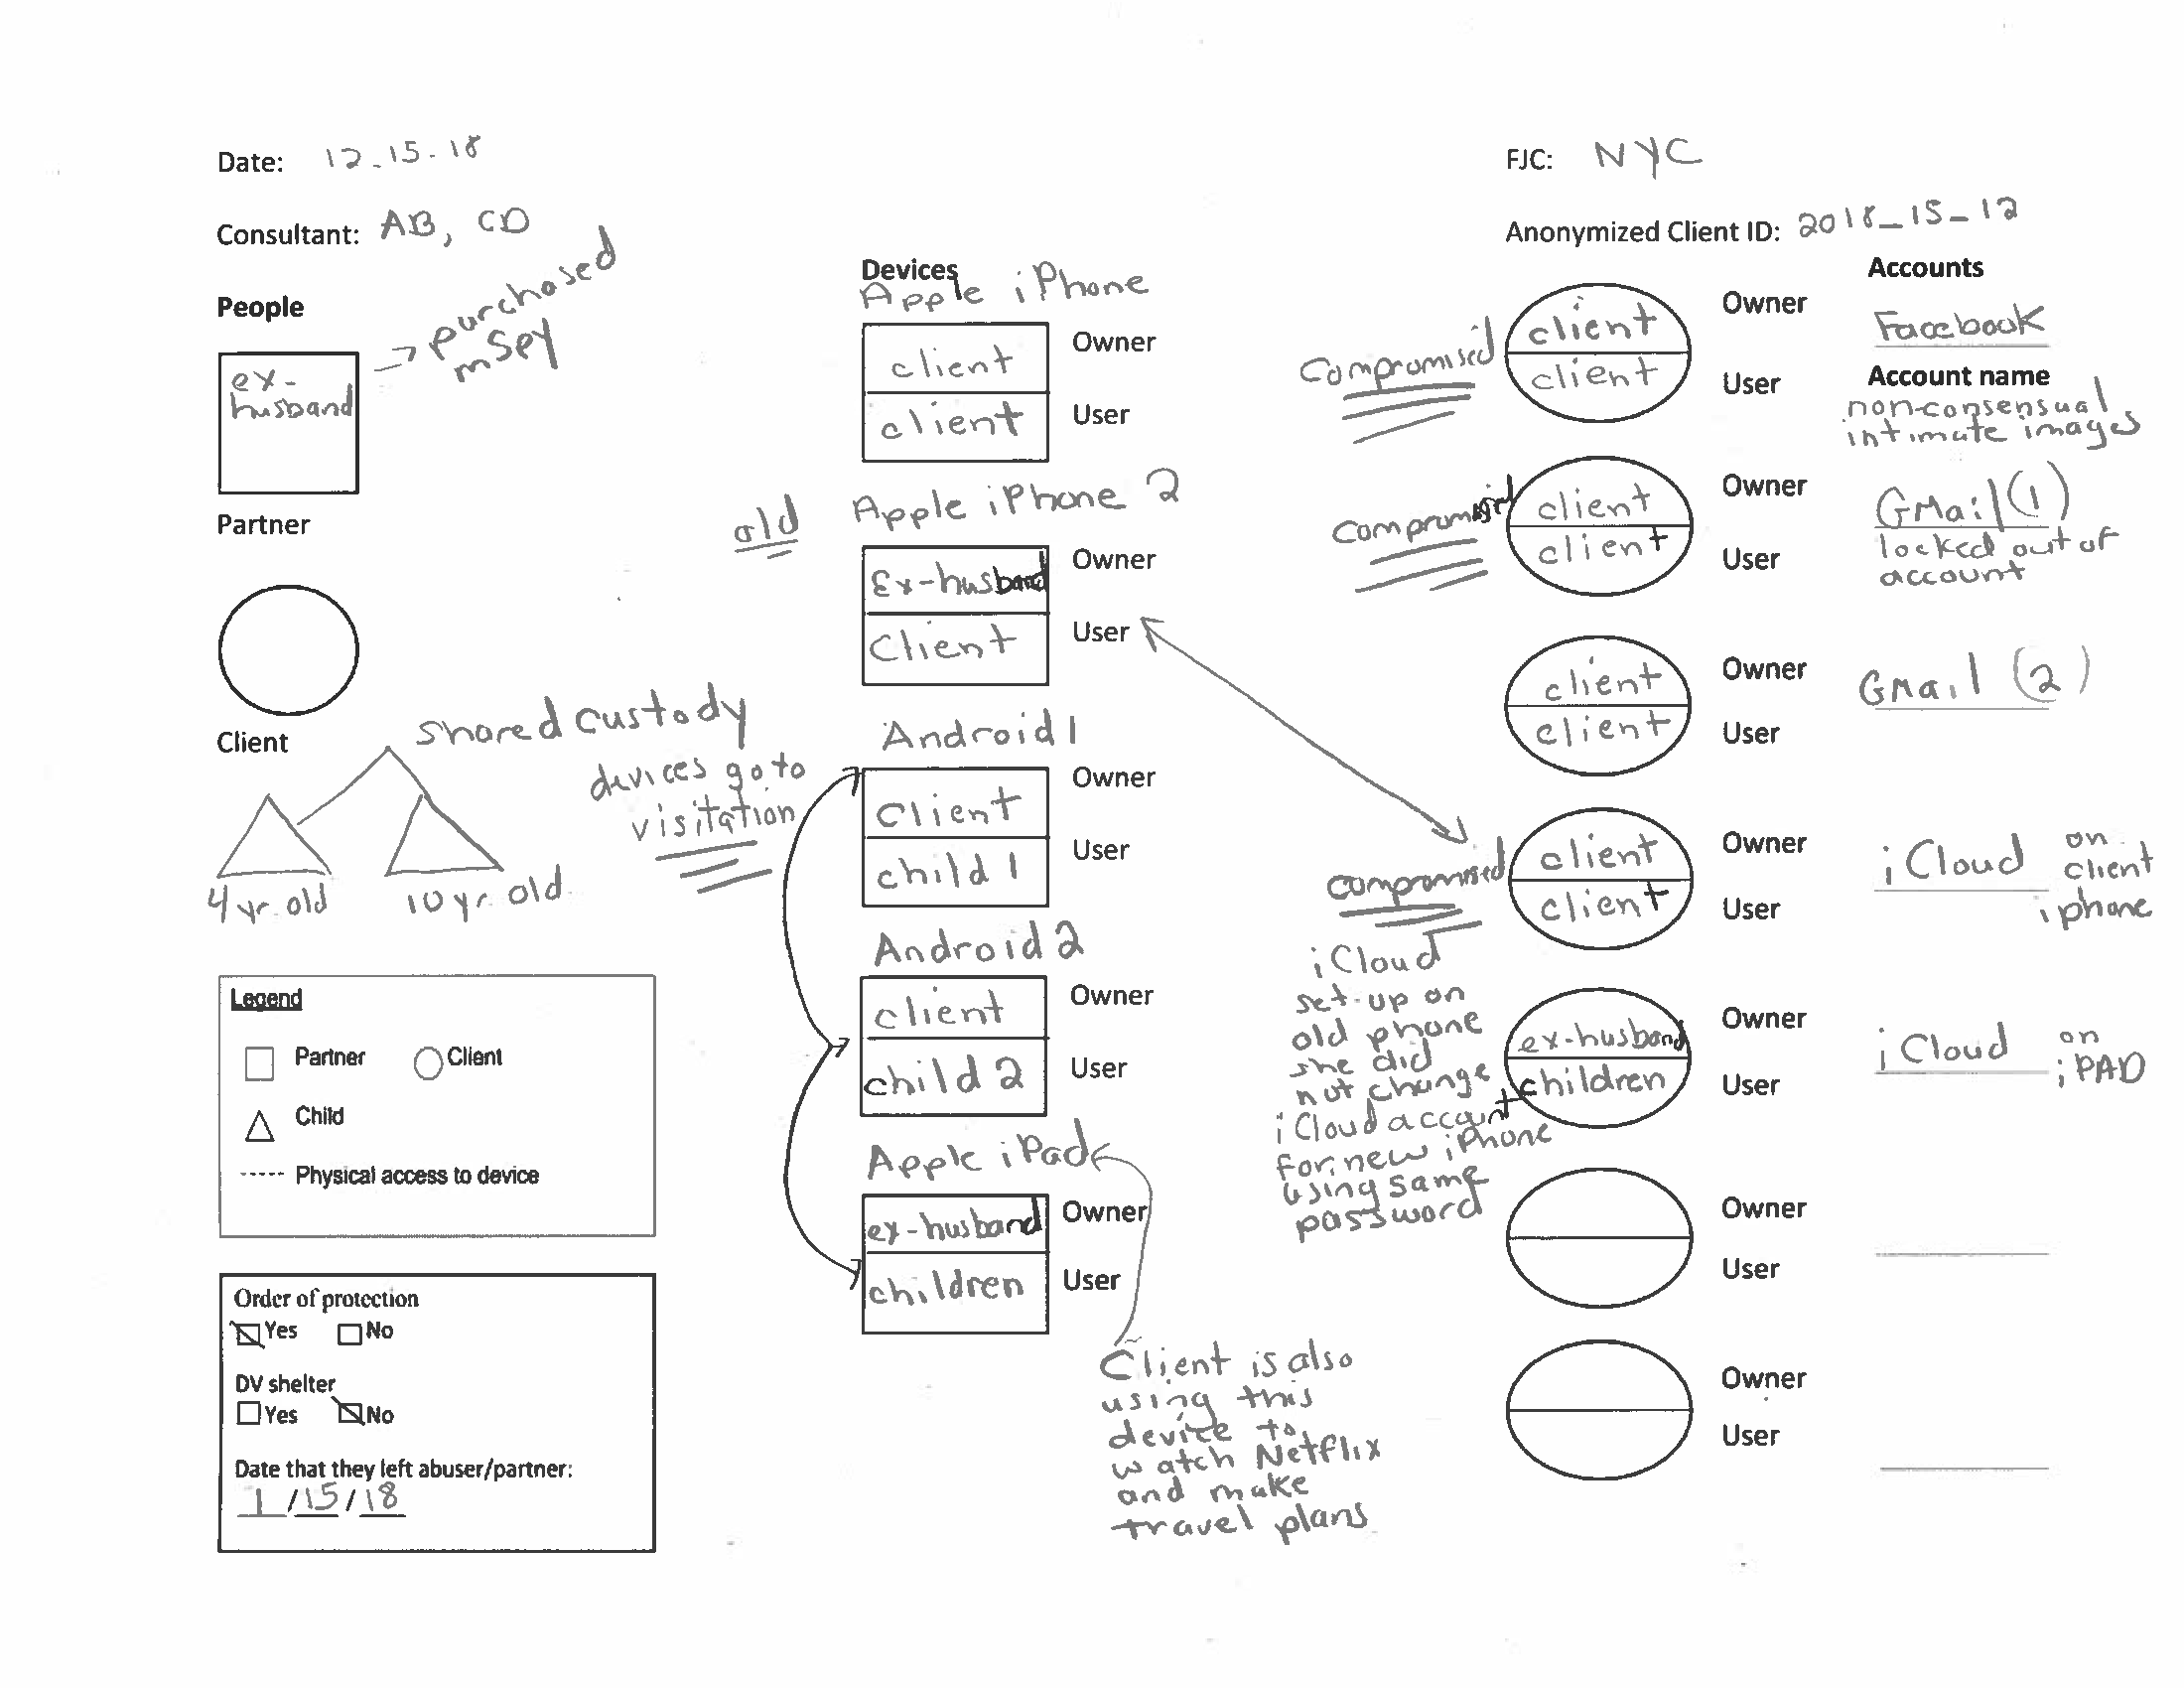 Date: 12-15-18
FJC: NYC
Consultant: AB, CD
Anonymized Client ID: 2018_15_12
People
ex-
husband
→ purchased
mSpy
Partner
Client
shared custody
devices go to
visitation
4 yr. old
10 yr. old
Legend
Partner
Client
Child
----- Physical access to device
Order of protection
Yes No
DV shelter
Yes No
Date that they left abuser/partner:
1/15/18
Devices
Apple iPhone
client Owner
client User
old
Apple iPhone 2
Ex-husband Owner
Client User
Android 1
Client Owner
child 1 User
Android 2
client Owner
child 2 User
Apple iPad
ex-husband Owner
children User
Client is also
using this
device to
watch Netflix
and make
travel plans
Accounts
Compromised
client Owner
client User
Facebook
Account name
non-consensual
intimate images
compromised
client Owner
client User
GMail (1)
locked out of
account
client Owner
client User
GMail (2)
compromised
client Owner
client User
iCloud on
client
iphone
iCloud
set-up on
old phone
she did
not change
iCloud account
for new iPhone
using same
password
ex-husband Owner
children User
iCloud on
iPAD
Owner
User
Owner
User